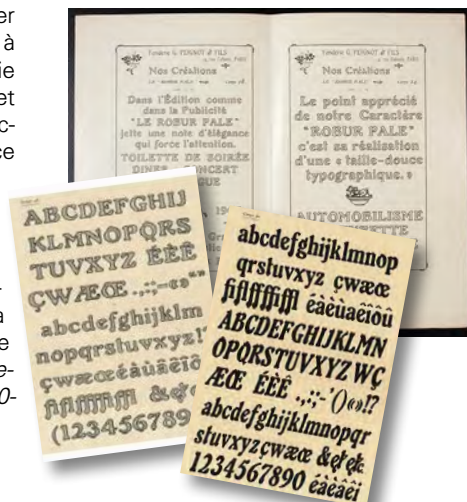 er
à
ie
et
c-
ce
-
a
e
e-
0-
Fonderie G. PEIGNOT & FILS
Nos Créations
Dans l'Édition comme
dans la Publicité
"LE ROBUR PALE"
jette une note d'élégance
qui force l'attention.
TOILETTE DE SOIRÉE
DINER CONCERT
GUE
Fonderie G. PEIGNOT & FILS
Nos Créations
Le point apprécié
de notre Caractère
"ROBUR PALE"
c'est sa réalisation
d'une « taille-douce
typographique. »
AUTOMOBILISME
ETTE
ABCDEFGHIJ
KLMNOPQRS
TUVXYZ ÉÈÊ
ÇWÆŒ .,:;-«»"
abcdefghijklm
nopqrstuvxyz!'
çwæœéàùâêîô
fiflffffiffl &
(1234567890
abcdefghijklmnop
qrstuvxyz çwæœ
fiflffffiffl éàèùaêîôû
ABCDEFGHIJKLMN
OPQRSTUVXYZ WÇ
ÆŒ ÉÈÊ .,:;-'()«»!?
abcdefghijklmnopqr
stuvxyz çwæœ &
1234567890 éàèâêî